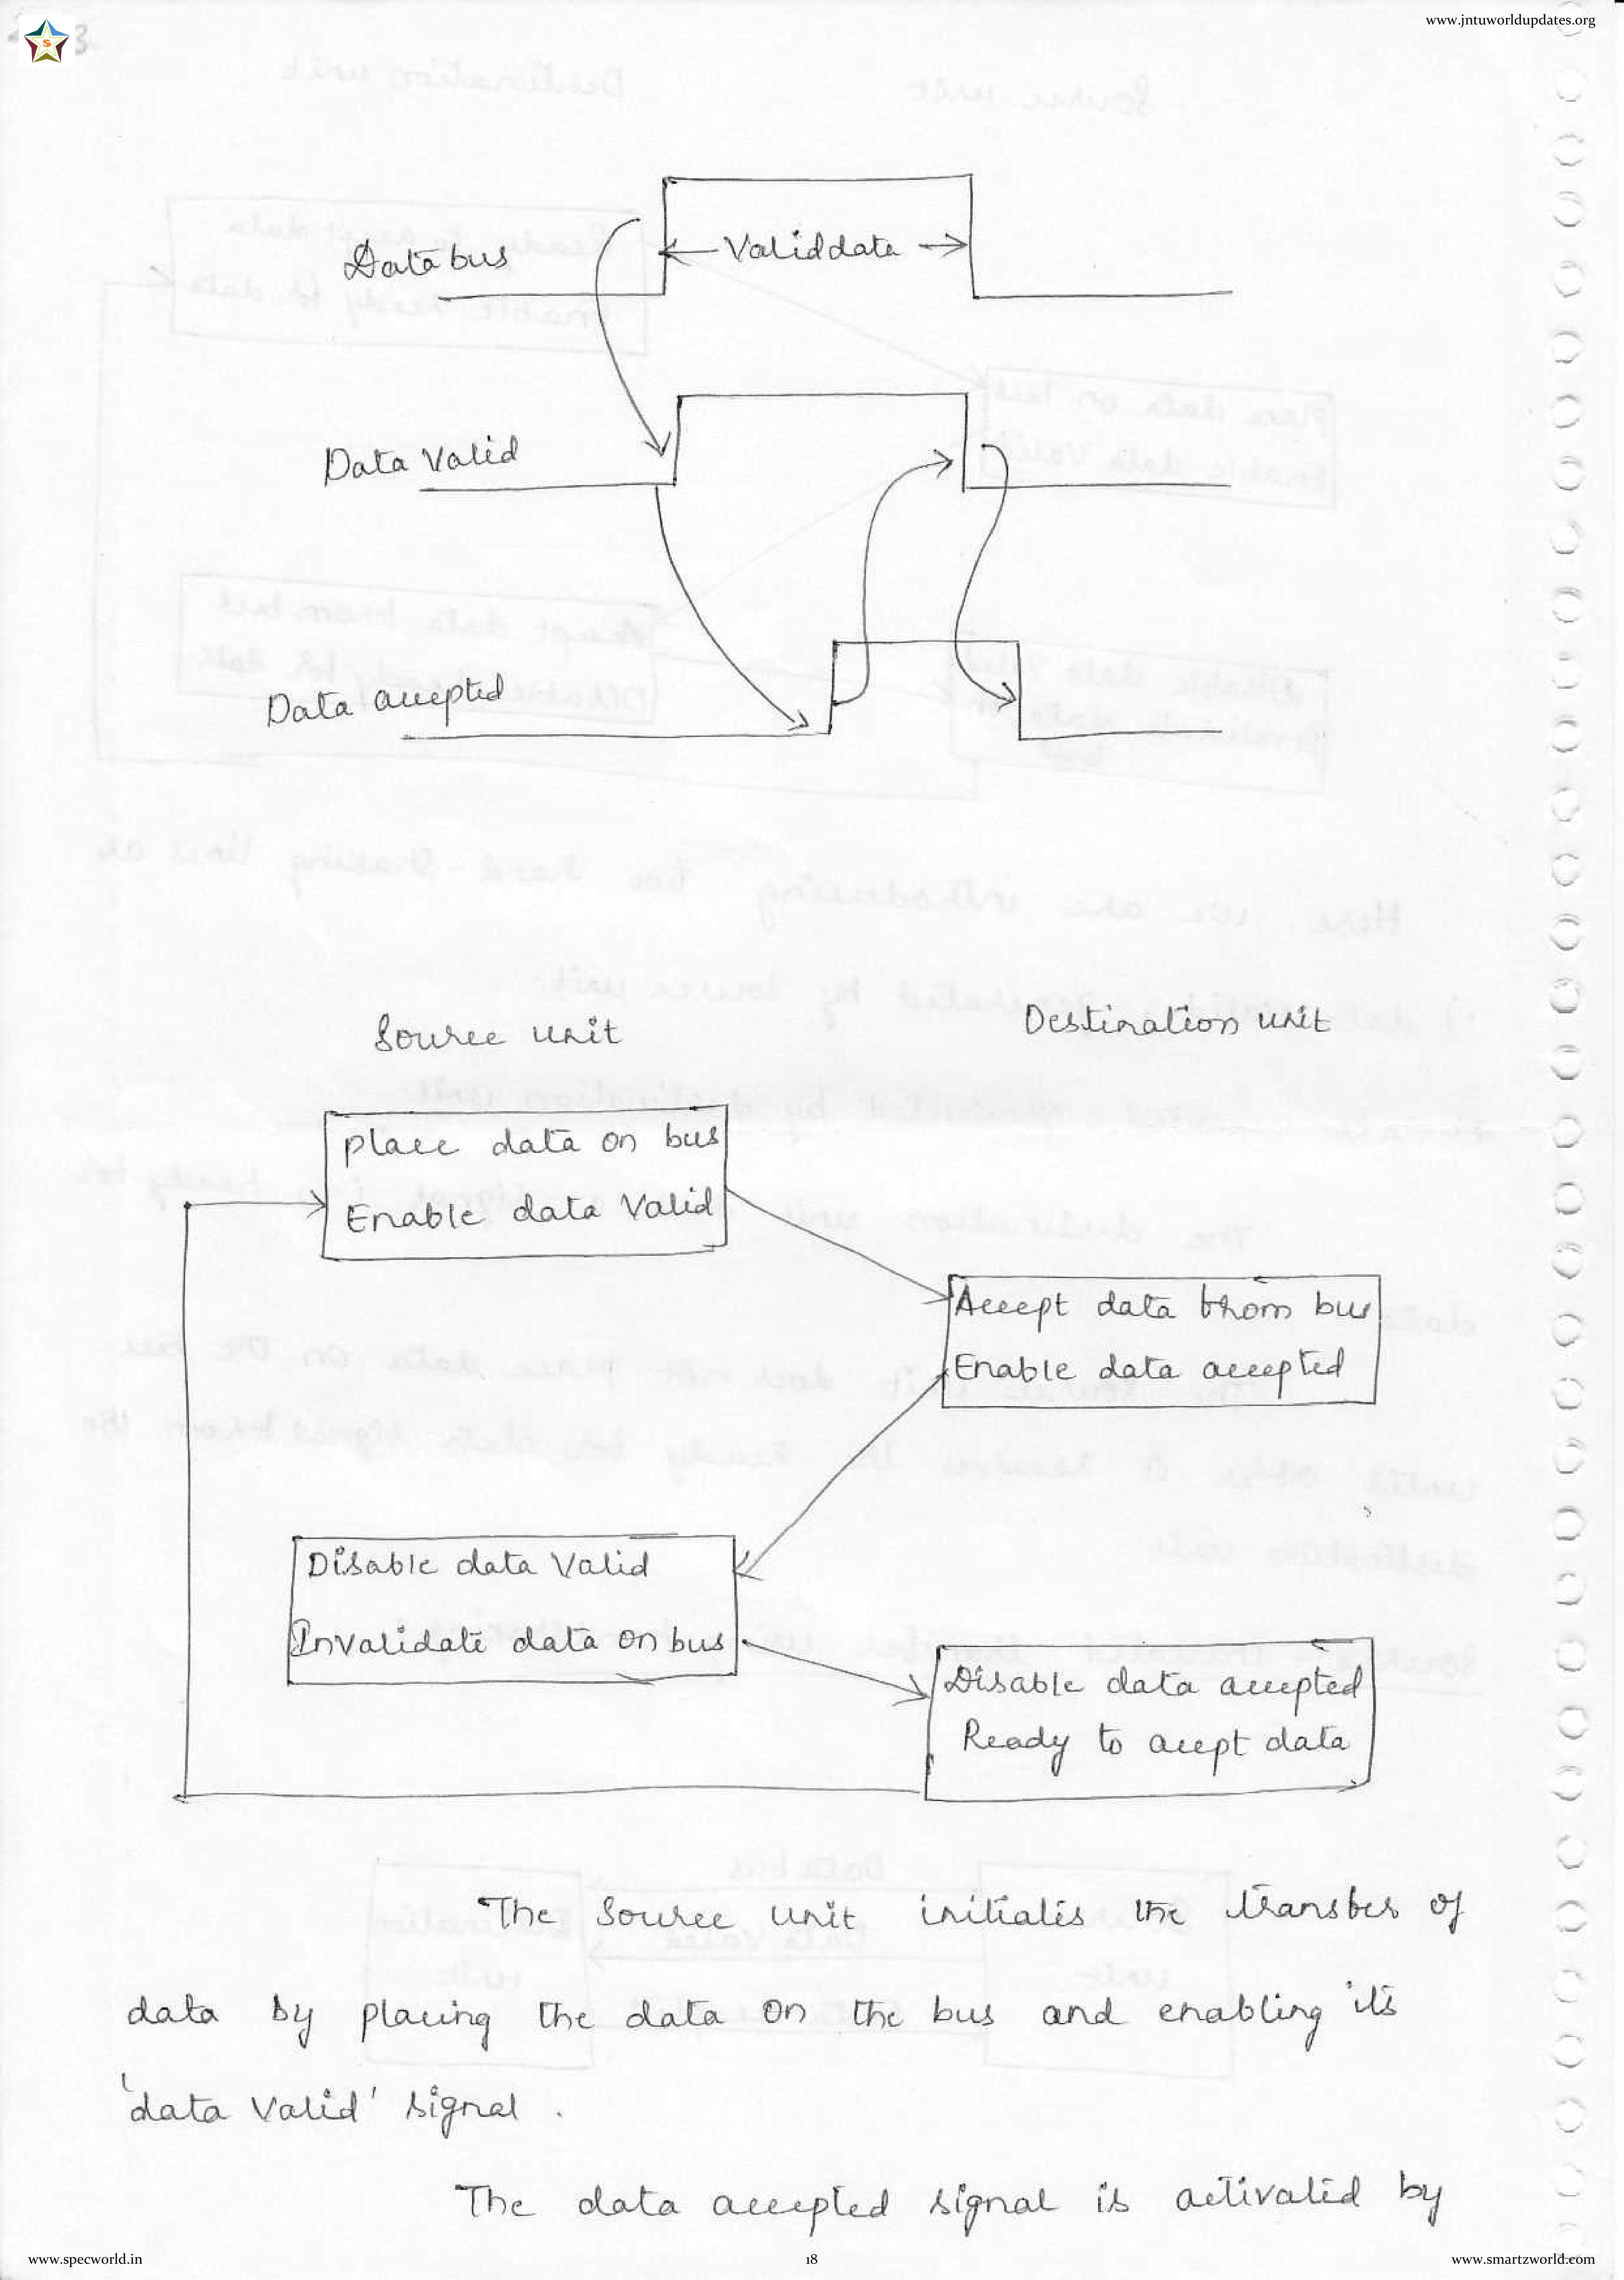 www.jntuworldupdates.org
Data bus
Valid data
Data Valid
Data accepted
Source unit
Destination unit
Place data on bus
Enable data Valid
Accept data from bus
Enable data accepted
Disable data Valid
Invalidate data on bus
Disable data accepted
Ready to acept data
The Source unit initiates the transfer of
data by placing the data on the bus and enabling its
'data Valid' signal.
The data accepted signal is activated by
www.specworld.in
18
www.smartzworld.com